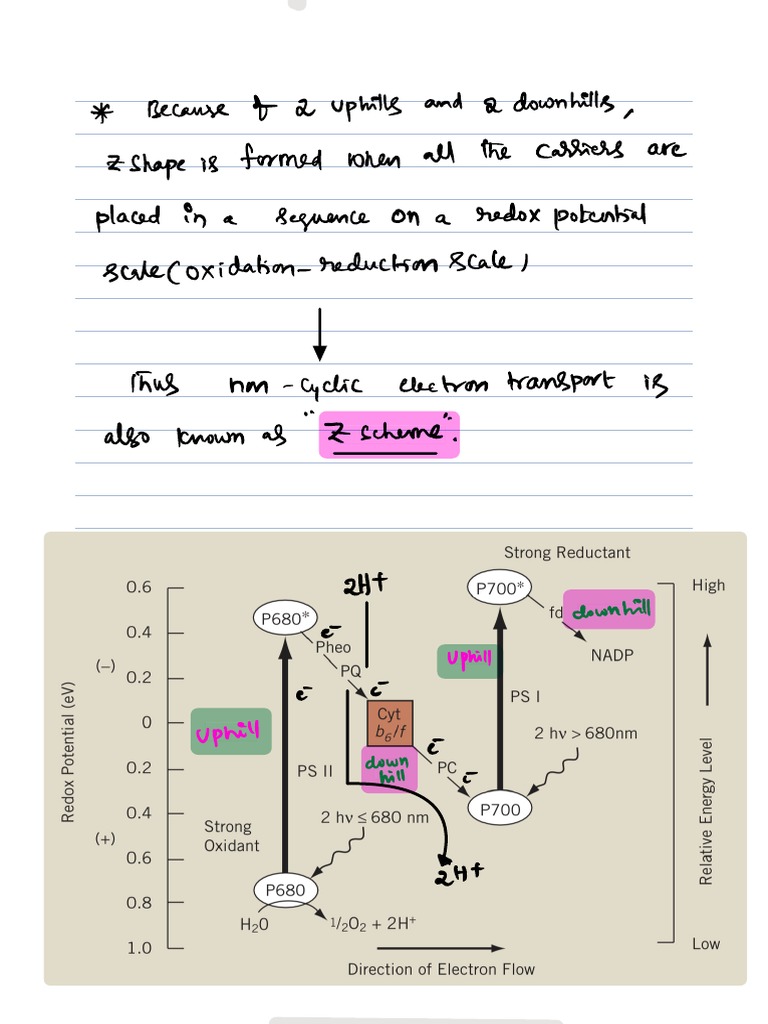 * Because of 2 uphills and 2 downhills,
Z shape is formed when all the carriers are
placed in a sequence on a redox potential
scale (oxidation-reduction scale)
Thus non-cyclic electron transport is
also known as "Z scheme".
Strong Reductant
0.6
0.4
(–)
0.2
0
0.2
0.4
(+)
0.6
0.8
1.0
Redox Potential (eV)
P680*
e⁻
Pheo
PQ
e⁻
2H+
e⁻
uphill
PS II
Cyt
b₆/f
down
hill
e⁻
PC
e⁻
2 hν ≤ 680 nm
2H+
Strong
Oxidant
P680
H₂O
1/2O₂ + 2H⁺
P700*
fd
downhill
NADP
uphill
PS I
2 hν > 680nm
P700
High
Relative Energy Level
Low
Direction of Electron Flow